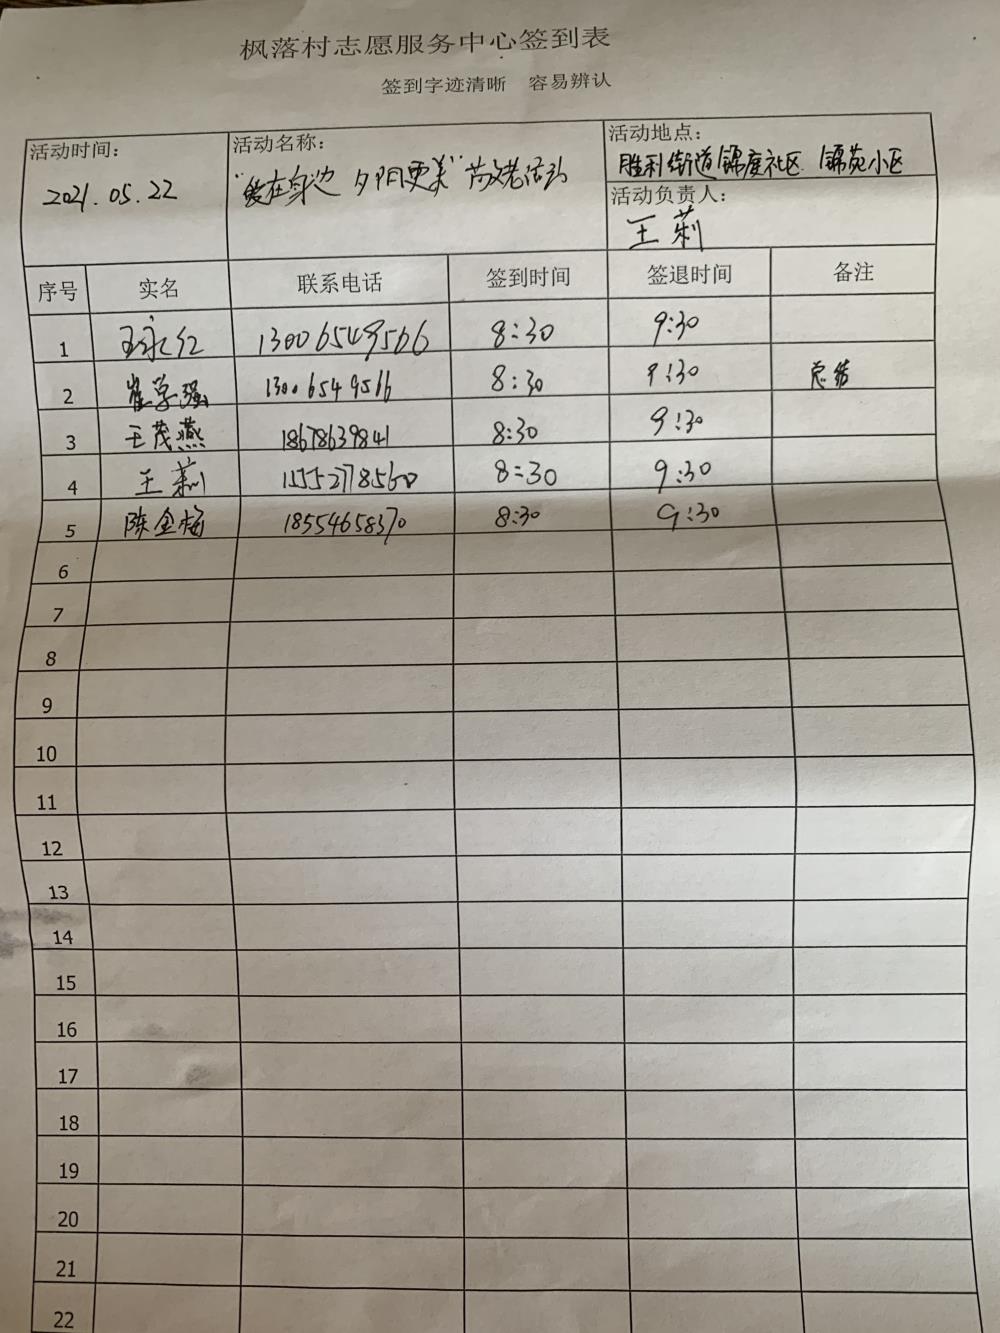 枫落村志愿服务中心签到表
签到字迹清晰 容易辨认
活动时间: 活动名称: 活动地点:
2021.05.22 "爱在身边 夕阳更美" 活动 胜利街道锦庭社区 锦苑小区
活动负责人:
王莉
序号 实名 联系电话 签到时间 签退时间 备注
1 王永红 13006549566 8:30 9:30
2 崔学强 13006549516 8:30 9:30 总结
3 王茂燕 18678639841 8:30 9:30
4 王莉 15552778560 8:30 9:30
5 陈金梅 18554658370 8:30 9:30
6
7
8
9
10
11
12
13
14
15
16
17
18
19
20
21
22